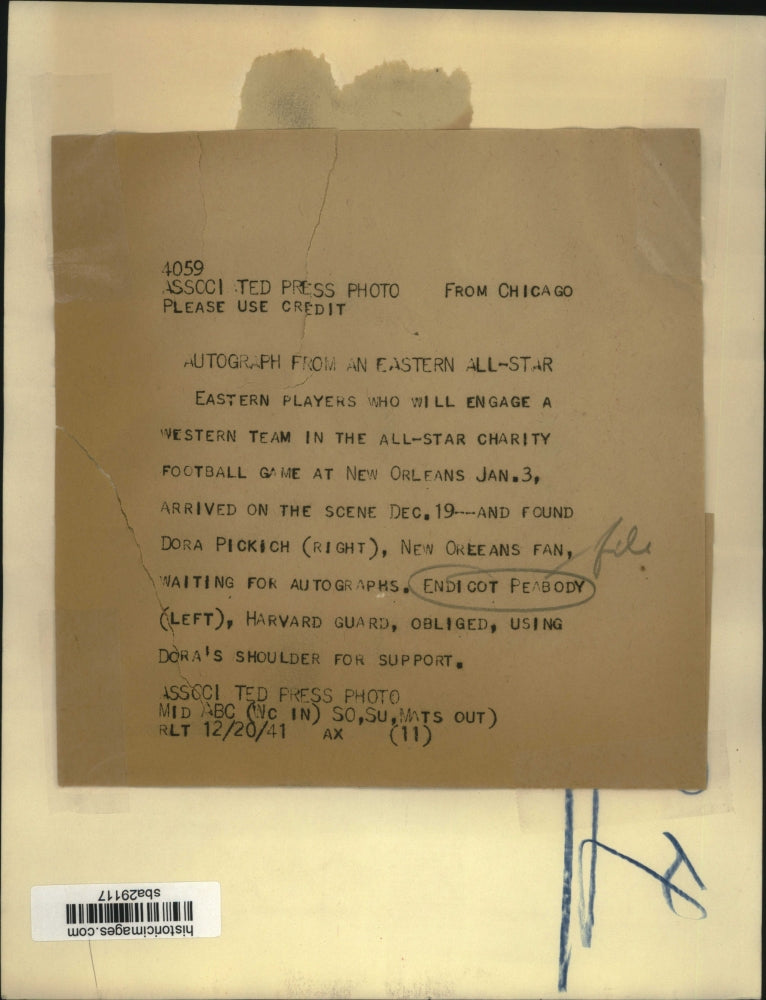 4059
ASSOCI TED PRESS PHOTO FROM CHICAGO
PLEASE USE CREDIT
AUTOGRAPH FROM AN EASTERN ALL-STAR
EASTERN PLAYERS WHO WILL ENGAGE A
WESTERN TEAM IN THE ALL-STAR CHARITY
FOOTBALL GAME AT NEW ORLEANS JAN.3,
ARRIVED ON THE SCENE DEC.19--AND FOUND
DORA PICKICH (RIGHT), NEW ORLEANS FAN,
file
WAITING FOR AUTOGRAPHS. ENDICOT PEABODY
(LEFT), HARVARD GUARD, OBLIGED, USING
DORA'S SHOULDER FOR SUPPORT.
ASSOCI TED PRESS PHOTO
MID ABC (WC IN) SO,SU,MATS OUT)
RLT 12/20/41 AX (11)
sba29117
historicimages.com